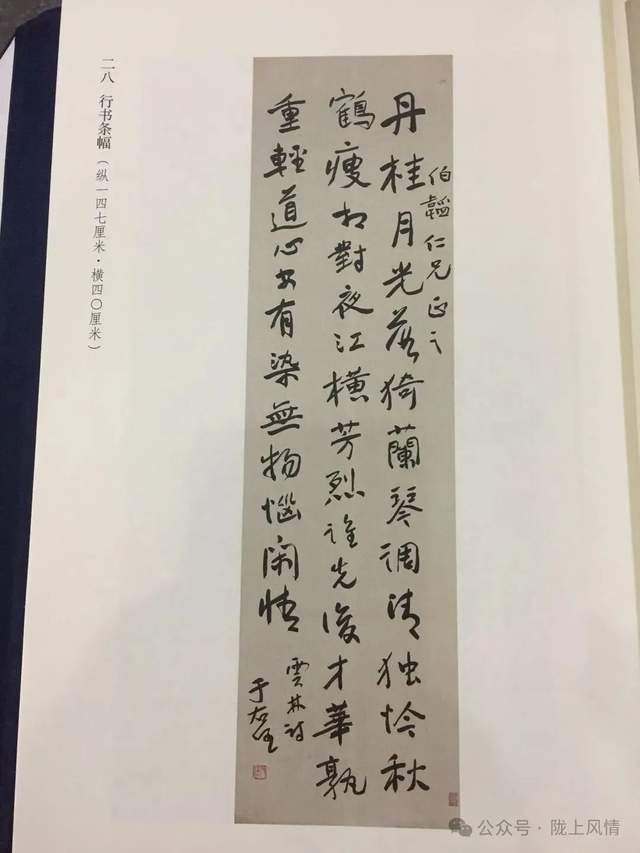 二八 行书条幅（纵一四七厘米·横四〇厘米）
丹桂月光落猗蘭琴調清独怜秋
鶴瘦相對夜江橫芳烈誰先後才華孰
重輕道心有染無物惱閑情
伯仁兄正之
雲林詩
于右任
公众号·陇上风情